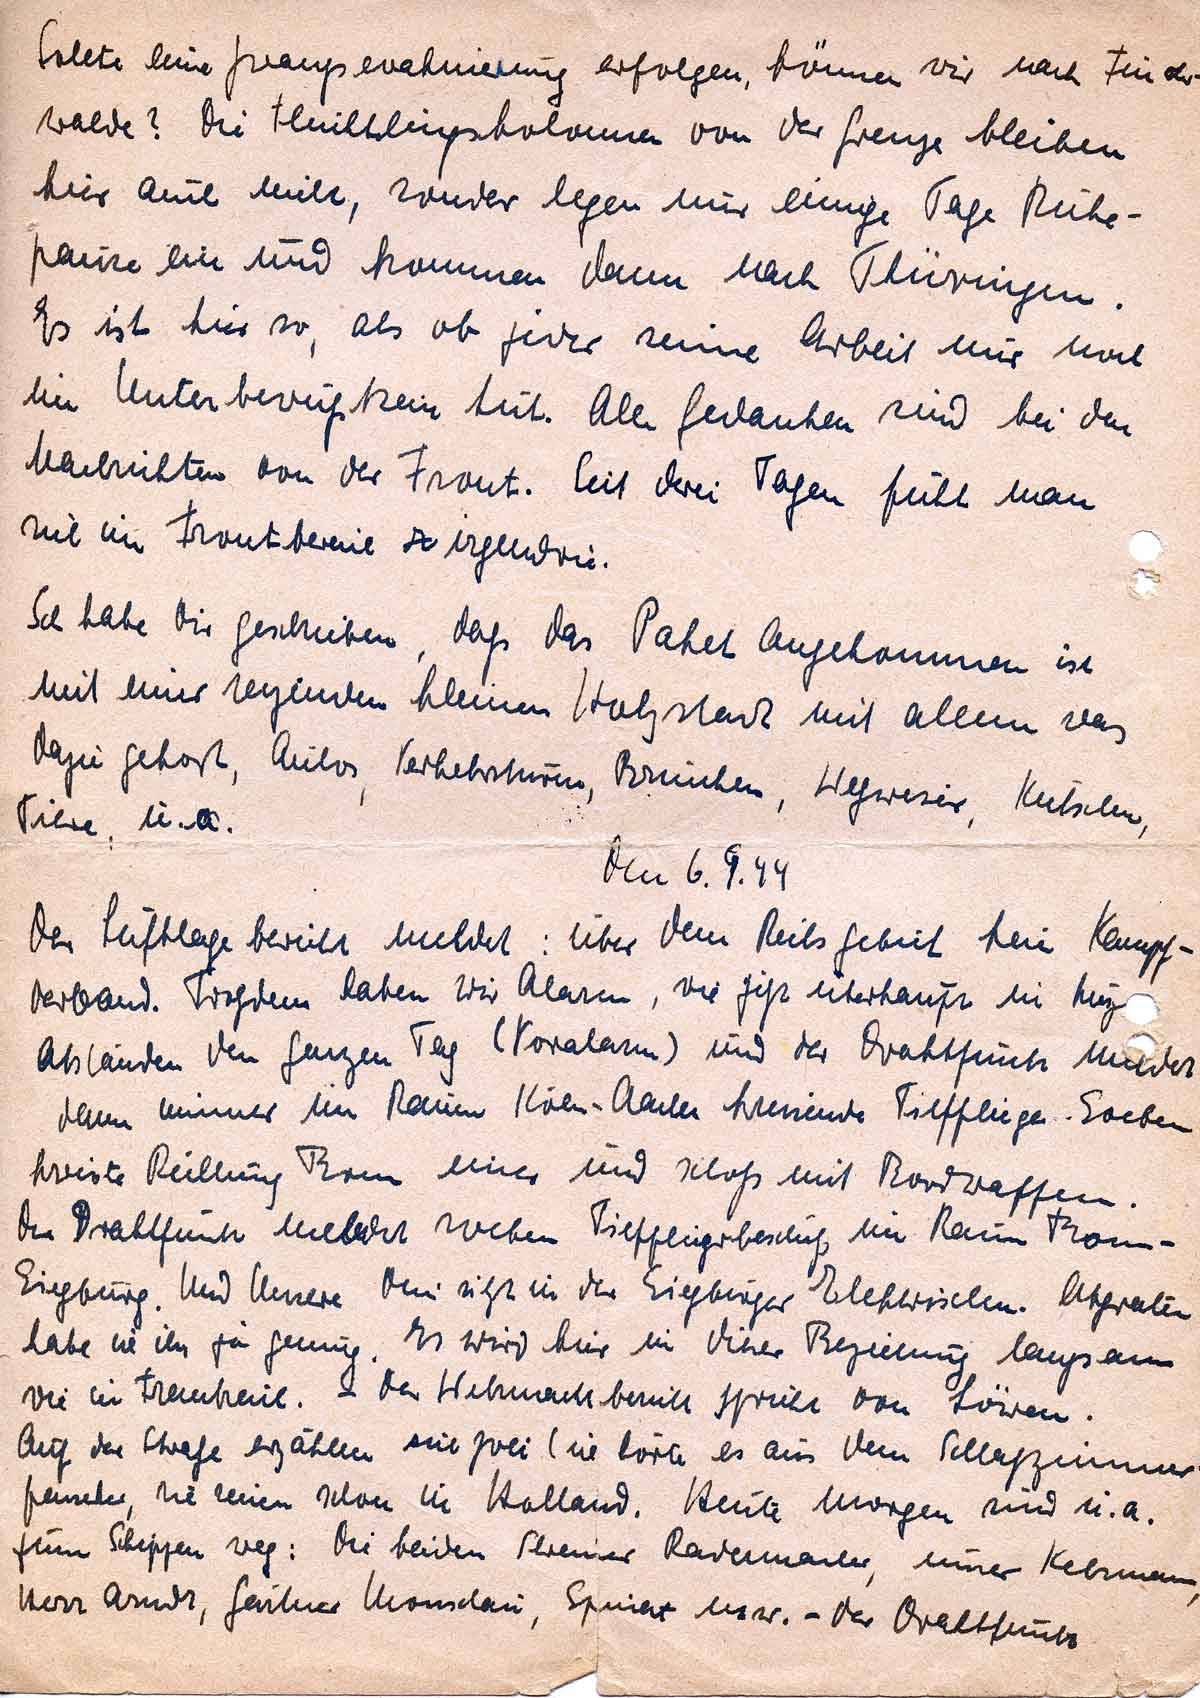 Sollte eine Zwangsevakuierung erfolgen, können wir nach Finster-
walde? Die Flüchtlingskolonnen von der Grenze bleiben
hier auch nicht, sonder legen nur einige Tage Ruhe-
pause ein und kommen dann nach Thüringen.
Es ist hier so, als ob jeder seine Arbeit nur noch
im Unterbewußtsein tut. Alle Gedanken sind bei den
Nachrichten von der Front. Seit drei Tagen fühlt man
sich im Frontbereich irgendwie.
Ich habe Dir geschrieben, daß das Paket angekommen ist
mit einer reizenden kleinen Holzstadt mit allem was
dazu gehört, Autos, Verkehrsturm, Brunnen, Wegweiser, Kutschen,
Tiere, u.a.
Den 6.9.44
Der Luftlagebericht meldet: über dem Reichsgebiet kein Kampf-
verband. Trotzdem haben wir Alarm, wie jetzt überhaupt in kurz
Abständen den ganzen Tag (Voralarm) und der Drahtfunk meldet
dann immer im Raum Köln-Aachen kreisende Tiefflieger. Soeben
kreiste Richtung Bonn einer und schoß mit Bordwaffen.
Der Drahtfunk meldet soeben Tieffliegerbeschuß im Raum Bonn-
Siegburg. Und unsere sitzt in der Siegburger Elektrischen. Abgeraten
habe ich ihr ja genug. Es wird hier in dieser Beziehung langsam
wie in Frankreich. – Der Wehrmachtbericht spricht von Löwen.
Auf der Straße erzählen sich zwei (ich hörte es aus dem Schlafzimmer-
fenster, sie seien schon in Holland. Heute Morgen sind u.a.
zum Schippen weg: Die beiden Schreiner Radermacher, unser
Herr Arndt, Gärtner usw. – Der Drahtfunk